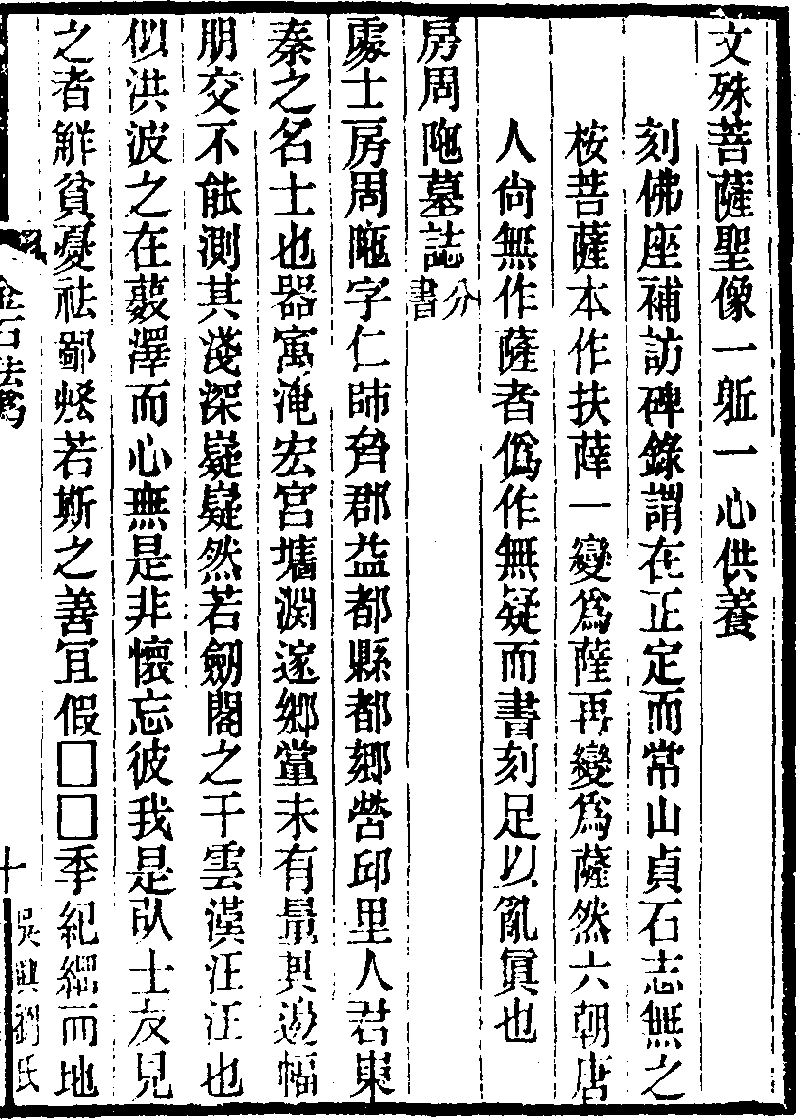 文殊菩薩聖像一軀一心供養
刻佛座補訪碑錄謂在正定而常山貞石志無之
桉菩薩本作扶薛一變爲薩再變爲薩然六朝唐
人尙無作薩者僞作無疑而書刻足以亂眞也
房周陁墓誌分書
處士房周陁字仁師齊郡益都縣都郷營邱里人君東
秦之名士也器寓淹宏宮墻淵邃郷黨未有量其邊幅
朋交不能測其淺深嶷嶷然若劒閣之干雲漢汪汪也
似洪波之在藪澤而心無是非懷忘彼我是以士友見
之者解貧憂祛鄙恡若斯之善冝假□□季紀縕而地
金石
十
吳興劉氏